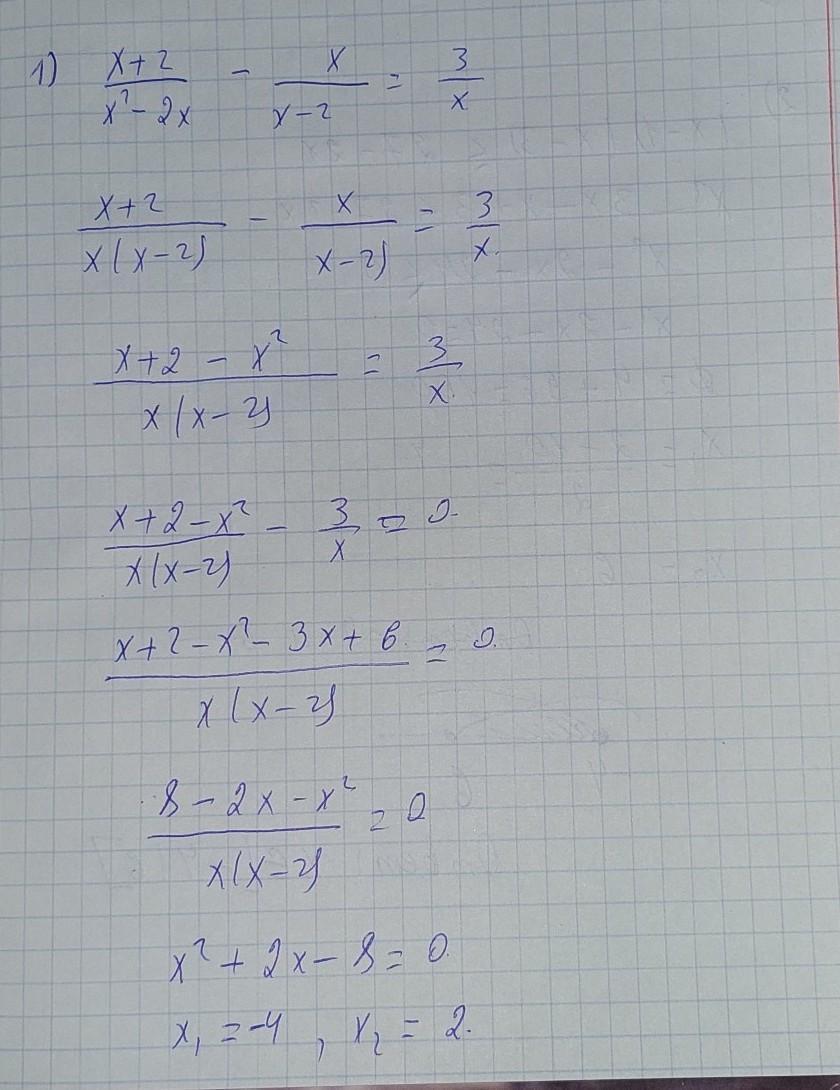 1) (x+2)/(x²-2x) - x/(x-2) = 3/x
(x+2)/(x(x-2)) - x/(x-2) = 3/x.
(x+2-x²)/(x(x-2)) = 3/x.
(x+2-x²)/(x(x-2)) - 3/x = 0.
(x+2-x²-3x+6.)/(x(x-2)) = 0.
(8-2x-x²)/(x(x-2)) = 0
x²+2x-8=0.
x₁=-4, x₂=2.